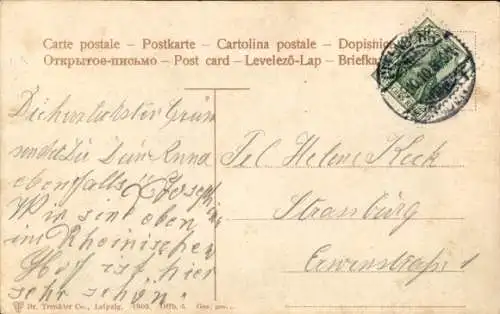 Carte postale – Postkarte – Cartolina postale – Dopisnice
Открытое письмо – Post card – Levelező-Lap – Briefka
Die herzlichsten Grüsse
sendet Dir Deine Anna
ebenfalls Joseph
Wir sind oben
im Rheinischen
Hof ist hier
sehr schön.
Frl Helene Keck
Strassburg
Erwinstrasse 1
Dr. Trenkler Co., Leipzig. 1905.